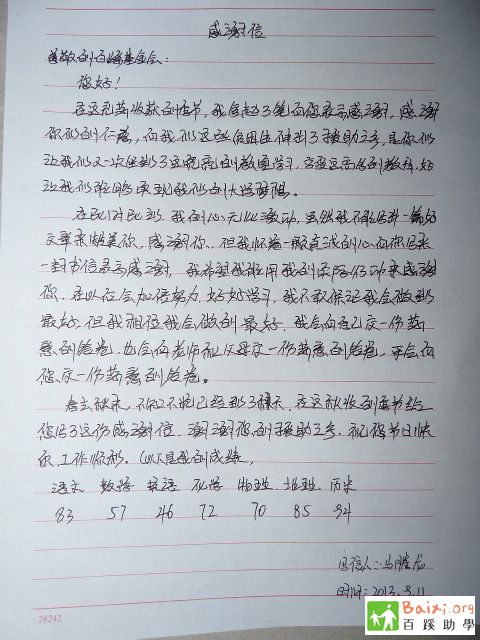 感谢信
尊敬的百蹊基金会:
您好!
在这和黄收获的季节,我拿起了笔向您表示感谢,感谢
你们的仁慈,向我们这些贫困生伸出了援助之手,是你们
让我们又一次坐到了这明亮的教室学习,
让我们能够实现我们的大学梦想。
在此时此刻,我的心无比激动,虽然我不能写出一篇好
文章来赞美你,感谢你,但我怀着一颗真诚的心向你写来
一封书信表示感谢,我希望我能用我的实际行动来感谢
你,在以后会加倍努力,好好学习,我不敢保证我会做到
最好,但我相信我会做到最好,我会向自己交一份满
意的答卷,也会向老师和父母交一份满意的答卷,更会向
您交一份满意的答卷。
春去秋来,不知不觉已经到了秋天,在这秋收的季节给
您写了这份感谢信,谢谢您的援助之手,祝您节日快
乐,工作顺利。(以下是我的成绩)
语文 数学 英语 化学 物理 地理 历史
83 57 46 72 70 85 94
写信人:马
时间:2013.9.11
28242
Baixi.org
百蹊助學